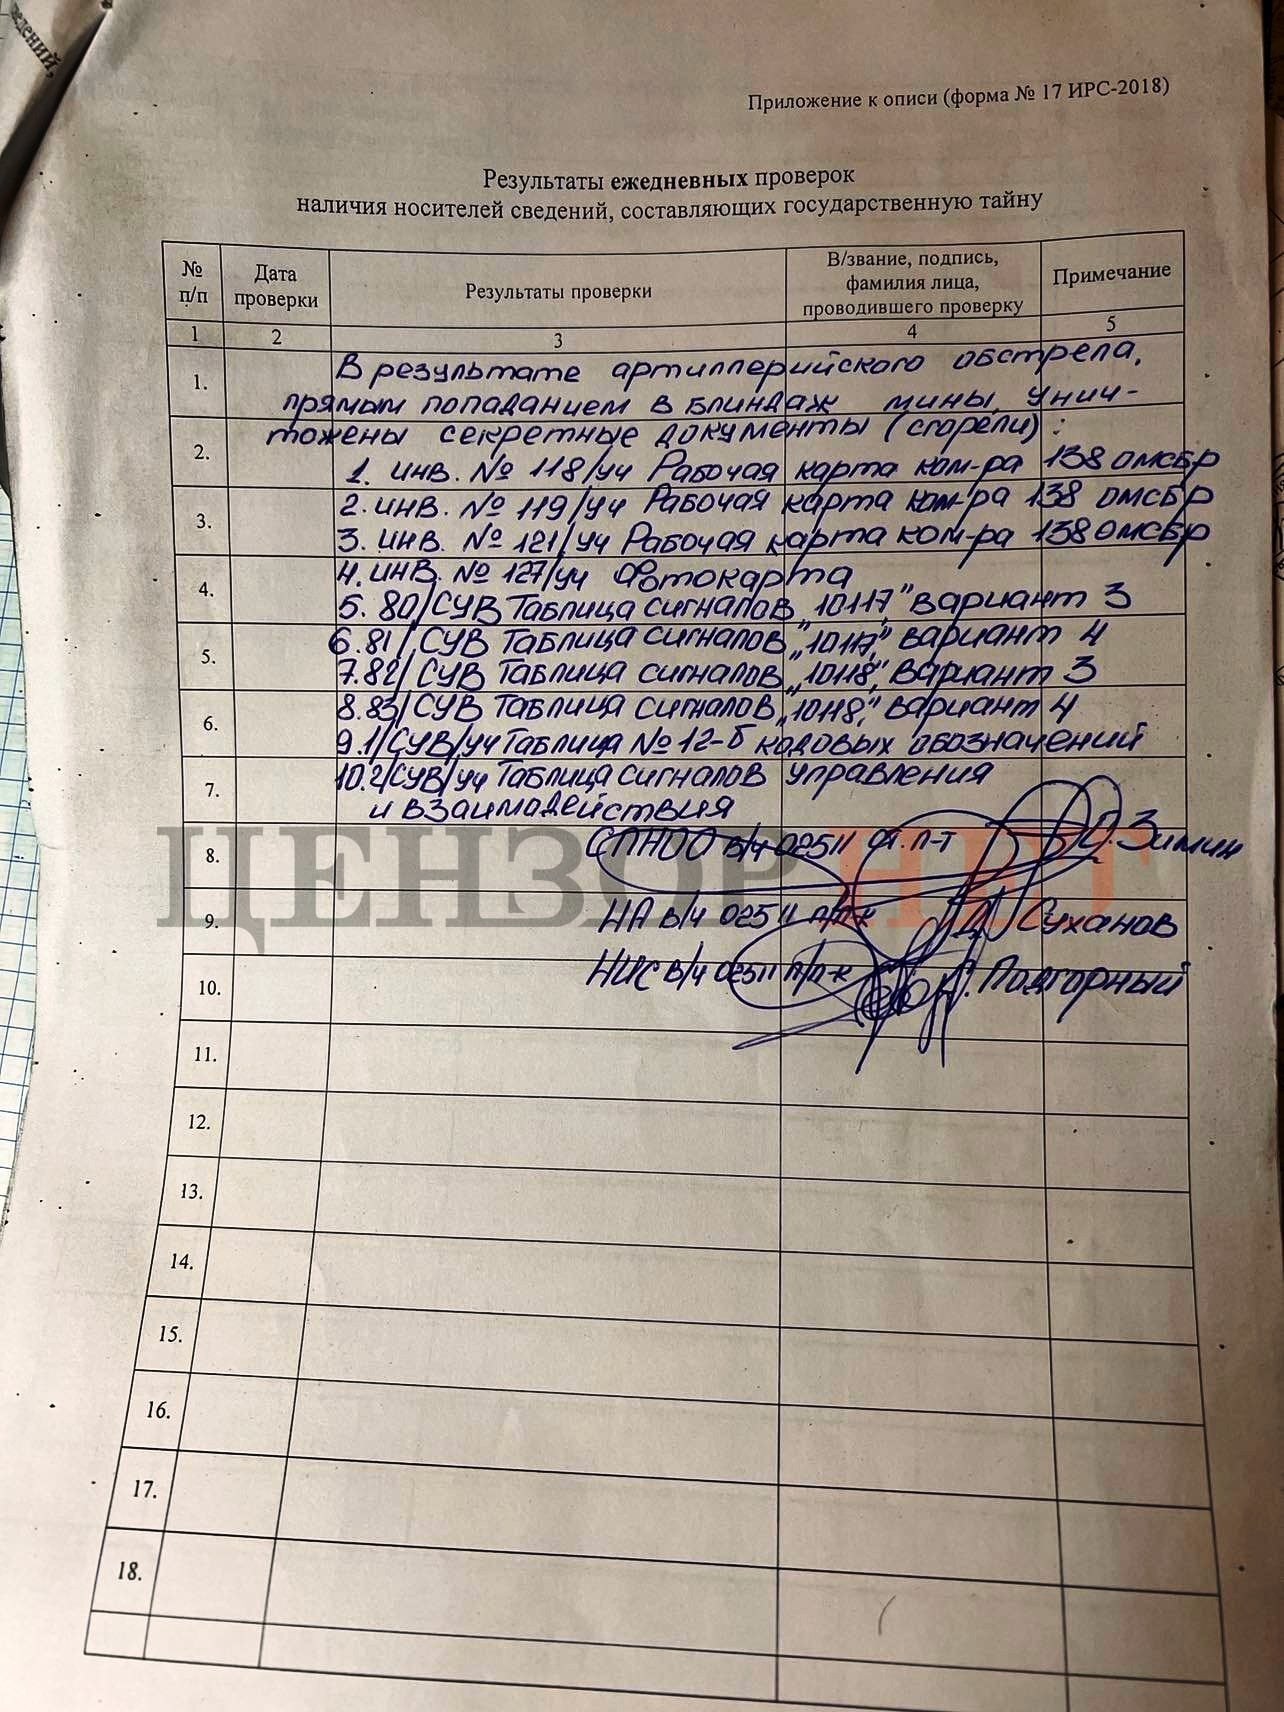 дений,
Приложение к описи (форма № 17 ИРС-2018)
Результаты ежедневных проверок
наличия носителей сведений, составляющих государственную тайну
№ п/п
Дата проверки
Результаты проверки
В/звание, подпись, фамилия лица, проводившего проверку
Примечание
1 2 3 4 5
1.
В результате артиллерийского обстрела,
прямым попаданием в блиндаж мины, унич-
2.
тожены секретные документы (сгорели):
1. инв. № 118/уч Рабочая карта ком-ра 138 омсбр
3.
2. инв. № 119/уч Рабочая карта ком-ра 138 омсбр
3. инв. № 121/уч Рабочая карта ком-ра 138 омсбр
4.
4. инв. № 127/уч Фотокарта
5. 80/СУВ Таблица сигналов „10117," вариант 3
5.
6. 81/СУВ Таблица сигналов „10117," вариант 4
7. 82/СУВ Таблица сигналов „10118," вариант 3
6.
8. 83/СУВ Таблица сигналов „10118," вариант 4
9. 1/СУВ/уч Таблица № 12-б кодовых обозначений
7.
10. 2/СУВ/уч Таблица сигналов управления
и взаимодействия
ЦЕНЗОР.НЕТ
8.
СПНОО в/ч 02511 ст. л-т О. Зимин
9.
НА в/ч 02511 п/п-к Д. Суханов
10.
НИС в/ч 02511 п/п-к Подгорный
11.
12.
13.
14.
15.
16.
17.
18.